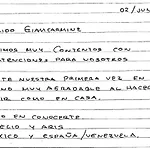 02/JUN
IDO GIANCARMINE
IMOS MUY CONTENTOS CON
TENCIONES PARA NOSOTROS
TE NUESTRA PRIMERA VEZ EN
NO MUY AGRADABLE AL HACER
IR COMO EN CASA.
O EN CONOCERTE
ECIO Y ARIS
XICO Y ESPAÑA/VENEZUELA.